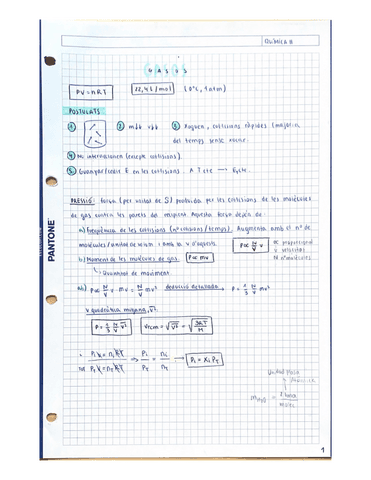 QUÍMICA II
GASOS
PV = nRT
22,4 L/mol (0°C, 1atm)
POSTULATS
1
2 m↓↓ v↓↓
3 Xoquen, col·lisions ràpides (majoria
del temps sense xocar
4 No interaccionen (excepte col·lisions).
5 Guanyar/cedir E en les col·lisions. A T cte → Ec cte.
PRESSIÓ: força (per unitat de S) produïda per les col·lisions de les molècules
de gas contra les parets del recipient. Aquesta força depèn de:
a) Freqüència de les col·lisions (nº col·lisions/temps). Augmenta amb el nº de
molècules/unitat de volum i amb la v d'aquests.
P∝ N/V v
∝ proporcional
v velocitat
N nº molècules
b) Moment de les molècules de gas. P∝ mv
Quantitat de moviment
a+b) P∝ N/V v · mv = N/V mv² deducció detallada P = 1/3 N/V mv²
v quadràtica mitjana, v²:
P = 1/3 N/V v²
vrcm = √v² = √3RT/M
PiV = niRT
PTV = nTRT
⇒ Pi/PT = ni/nT → Pi = Xi PT
molècula
1
PANTONE